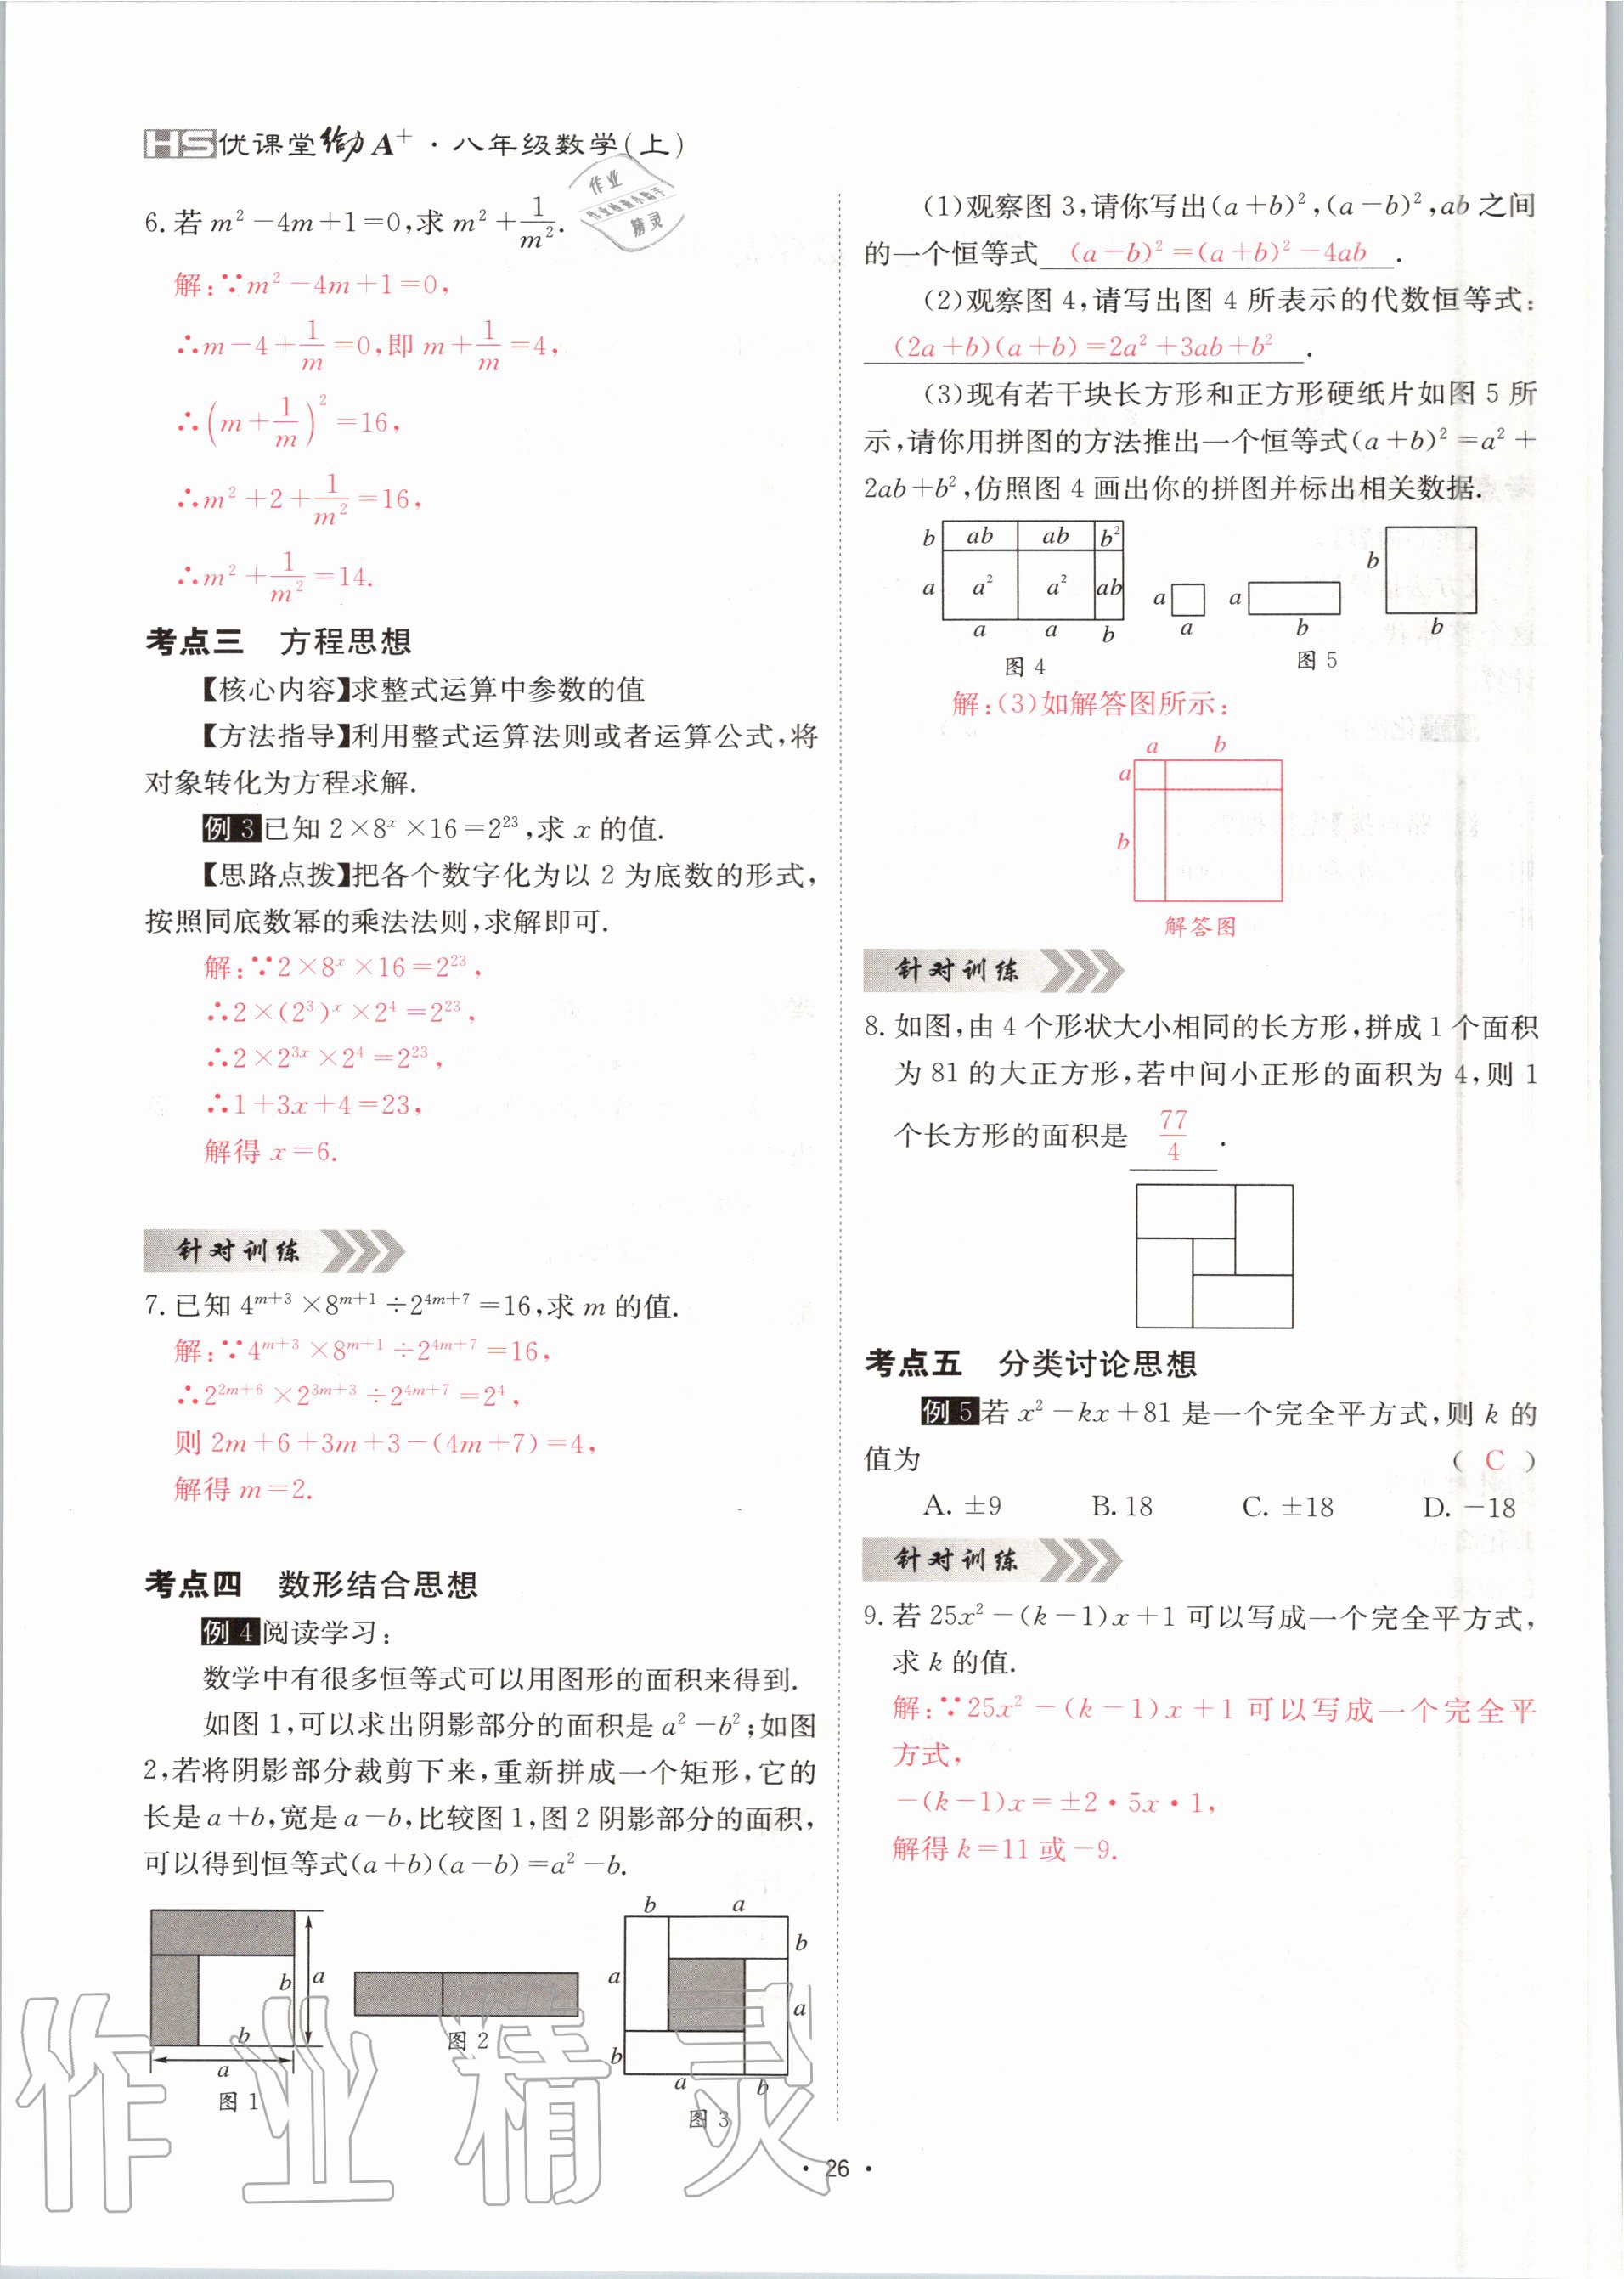 HS优课堂给力A⁺·八年级数学(上)
6. 若 m²－4m＋1＝0,求 m²＋1/m².
作业
作业检查小助手
精灵
解:∵m²－4m＋1＝0,
∴m－4＋1/m＝0,即 m＋1/m＝4,
∴(m＋1/m)²＝16,
∴m²＋2＋1/m²＝16,
∴m²＋1/m²＝14.
考点三 方程思想
【核心内容】求整式运算中参数的值
【方法指导】利用整式运算法则或者运算公式,将
对象转化为方程求解.
例 3 已知 2×8ˣ×16＝2²³,求 x 的值.
【思路点拨】把各个数字化为以 2 为底数的形式,
按照同底数幂的乘法法则,求解即可.
解:∵2×8ˣ×16＝2²³,
∴2×(2³)ˣ×2⁴＝2²³,
∴2×2³ˣ×2⁴＝2²³,
∴1＋3x＋4＝23,
解得 x＝6.
针对训练
7. 已知 4ᵐ⁺³×8ᵐ⁺¹÷2⁴ᵐ⁺⁷＝16,求 m 的值.
解:∵4ᵐ⁺³×8ᵐ⁺¹÷2⁴ᵐ⁺⁷＝16,
∴2²ᵐ⁺⁶×2³ᵐ⁺³÷2⁴ᵐ⁺⁷＝2⁴,
则 2m＋6＋3m＋3－(4m＋7)＝4,
解得 m＝2.
考点四 数形结合思想
例 4 阅读学习:
数学中有很多恒等式可以用图形的面积来得到.
如图 1,可以求出阴影部分的面积是 a²－b²;如图
2,若将阴影部分裁剪下来,重新拼成一个矩形,它的
长是 a＋b,宽是 a－b,比较图 1,图 2 阴影部分的面积,
可以得到恒等式(a＋b)(a－b)＝a²－b.
b a
b
b a a
a
b
b
a
a b
图 1
图 2
图 3
(1)观察图 3,请你写出(a＋b)²,(a－b)²,ab 之间
的一个恒等式 (a－b)²＝(a＋b)²－4ab .
(2)观察图 4,请写出图 4 所表示的代数恒等式:
(2a＋b)(a＋b)＝2a²＋3ab＋b² .
(3)现有若干块长方形和正方形硬纸片如图 5 所
示,请你用拼图的方法推出一个恒等式(a＋b)²＝a²＋
2ab＋b²,仿照图 4 画出你的拼图并标出相关数据.
b ab ab b²
a a² a² ab
a a b
a a
a b
b b
图 4
图 5
解:(3)如解答图所示:
a b
a
b
解答图
针对训练
8. 如图,由 4 个形状大小相同的长方形,拼成 1 个面积
为 81 的大正方形,若中间小正形的面积为 4,则 1
个长方形的面积是 77/4 .
考点五 分类讨论思想
例 5 若 x²－kx＋81 是一个完全平方式,则 k 的
值为 ( C )
A. ±9 B. 18 C. ±18 D. －18
针对训练
9. 若 25x²－(k－1)x＋1 可以写成一个完全平方式,
求 k 的值.
解:∵25x²－(k－1)x＋1 可以写成一个完全平
方式,
－(k－1)x＝±2·5x·1,
解得 k＝11 或－9.
作业精灵
·26·